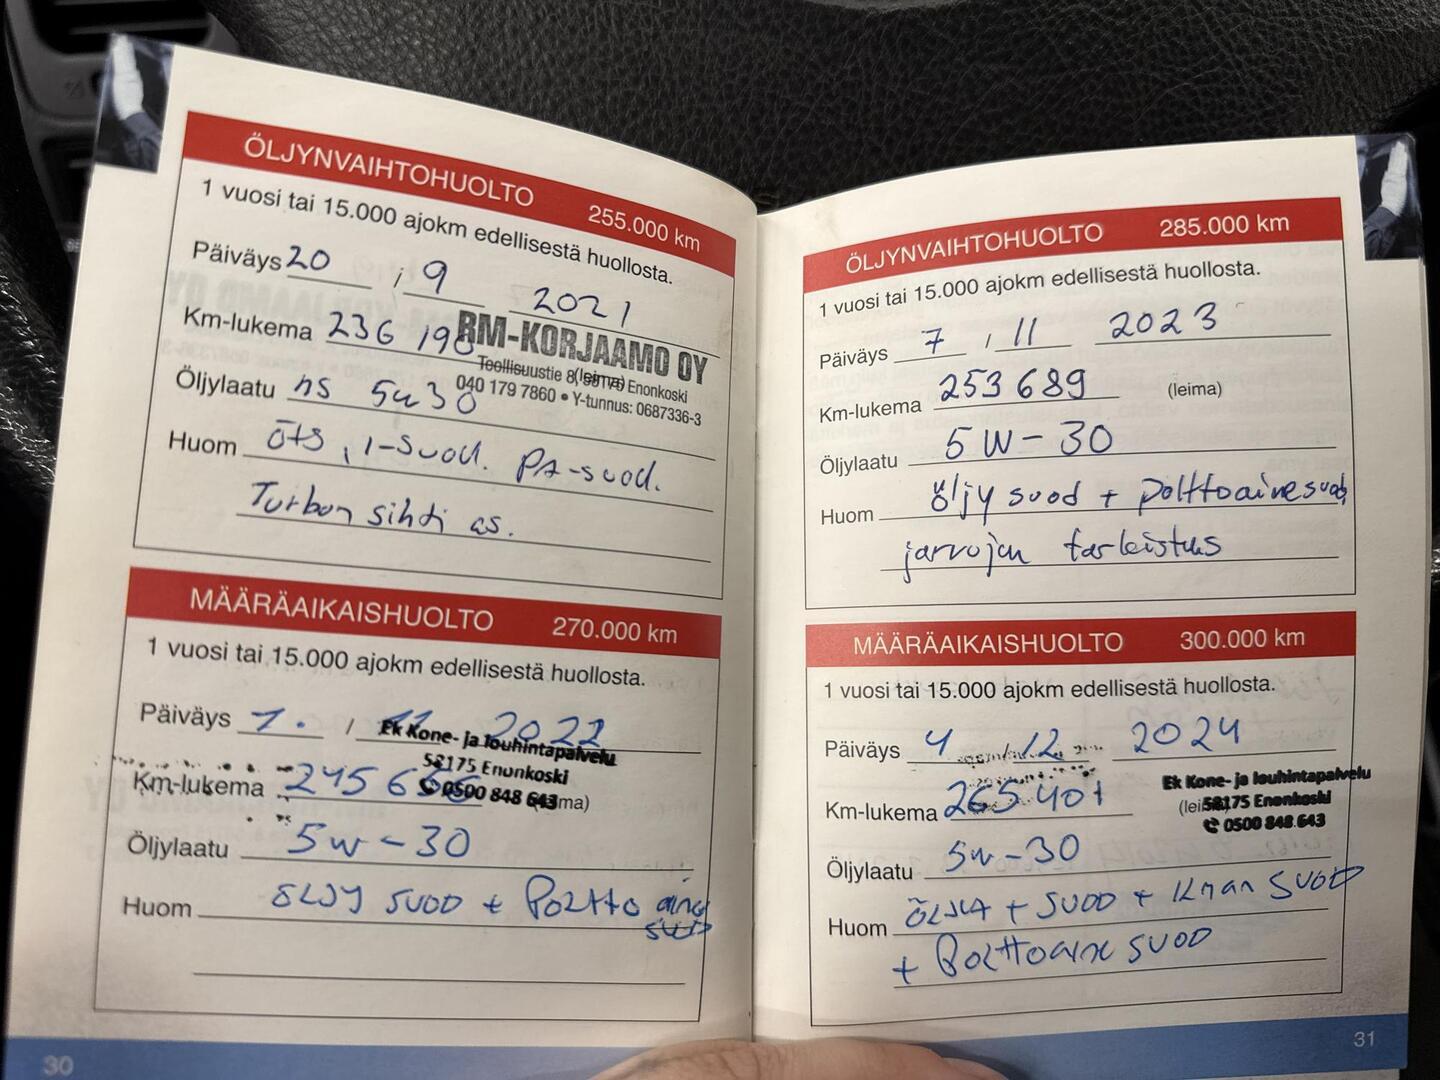 ÖLJYNVAIHTOHUOLTO 255.000 km
1 vuosi tai 15.000 ajokm edellisestä huollosta.
Päiväys 20 / 9 2021
Km-lukema 236 190
RM-KORJAAMO OY
Teollisuustie 8, 58175 Enonkoski
(leima)
040 179 7860 • Y-tunnus: 0687336-3
Öljylaatu ns 5w30
Huom öts, i-suod. PA-suod.
Turbon sihti as.
MÄÄRÄAIKAISHUOLTO 270.000 km
1 vuosi tai 15.000 ajokm edellisestä huollosta.
Päiväys 7. / 11 2022
Ek Kone- ja louhintapalvelu
58175 Enonkoski
Km-lukema 245 6
0500 848 643
Öljylaatu 5w-30
Huom ÖLJY SUOD + POLTTOaine
SUOD
30
ÖLJYNVAIHTOHUOLTO 285.000 km
1 vuosi tai 15.000 ajokm edellisestä huollosta.
Päiväys 7 / 11 2023
Km-lukema 253 689 (leima)
Öljylaatu 5W-30
Huom öljy suod + polttoainesuod
jarrujen tarkistus
MÄÄRÄAIKAISHUOLTO 300.000 km
1 vuosi tai 15.000 ajokm edellisestä huollosta.
Päiväys 4 / 12 2024
Km-lukema 265 401
Ek Kone- ja louhintapalvelu
58175 Enonkoski
0500 848 643
Öljylaatu 5w-30
Huom + SUOD + ILMAN SUOD
+ POLTTOaine SUOD
31